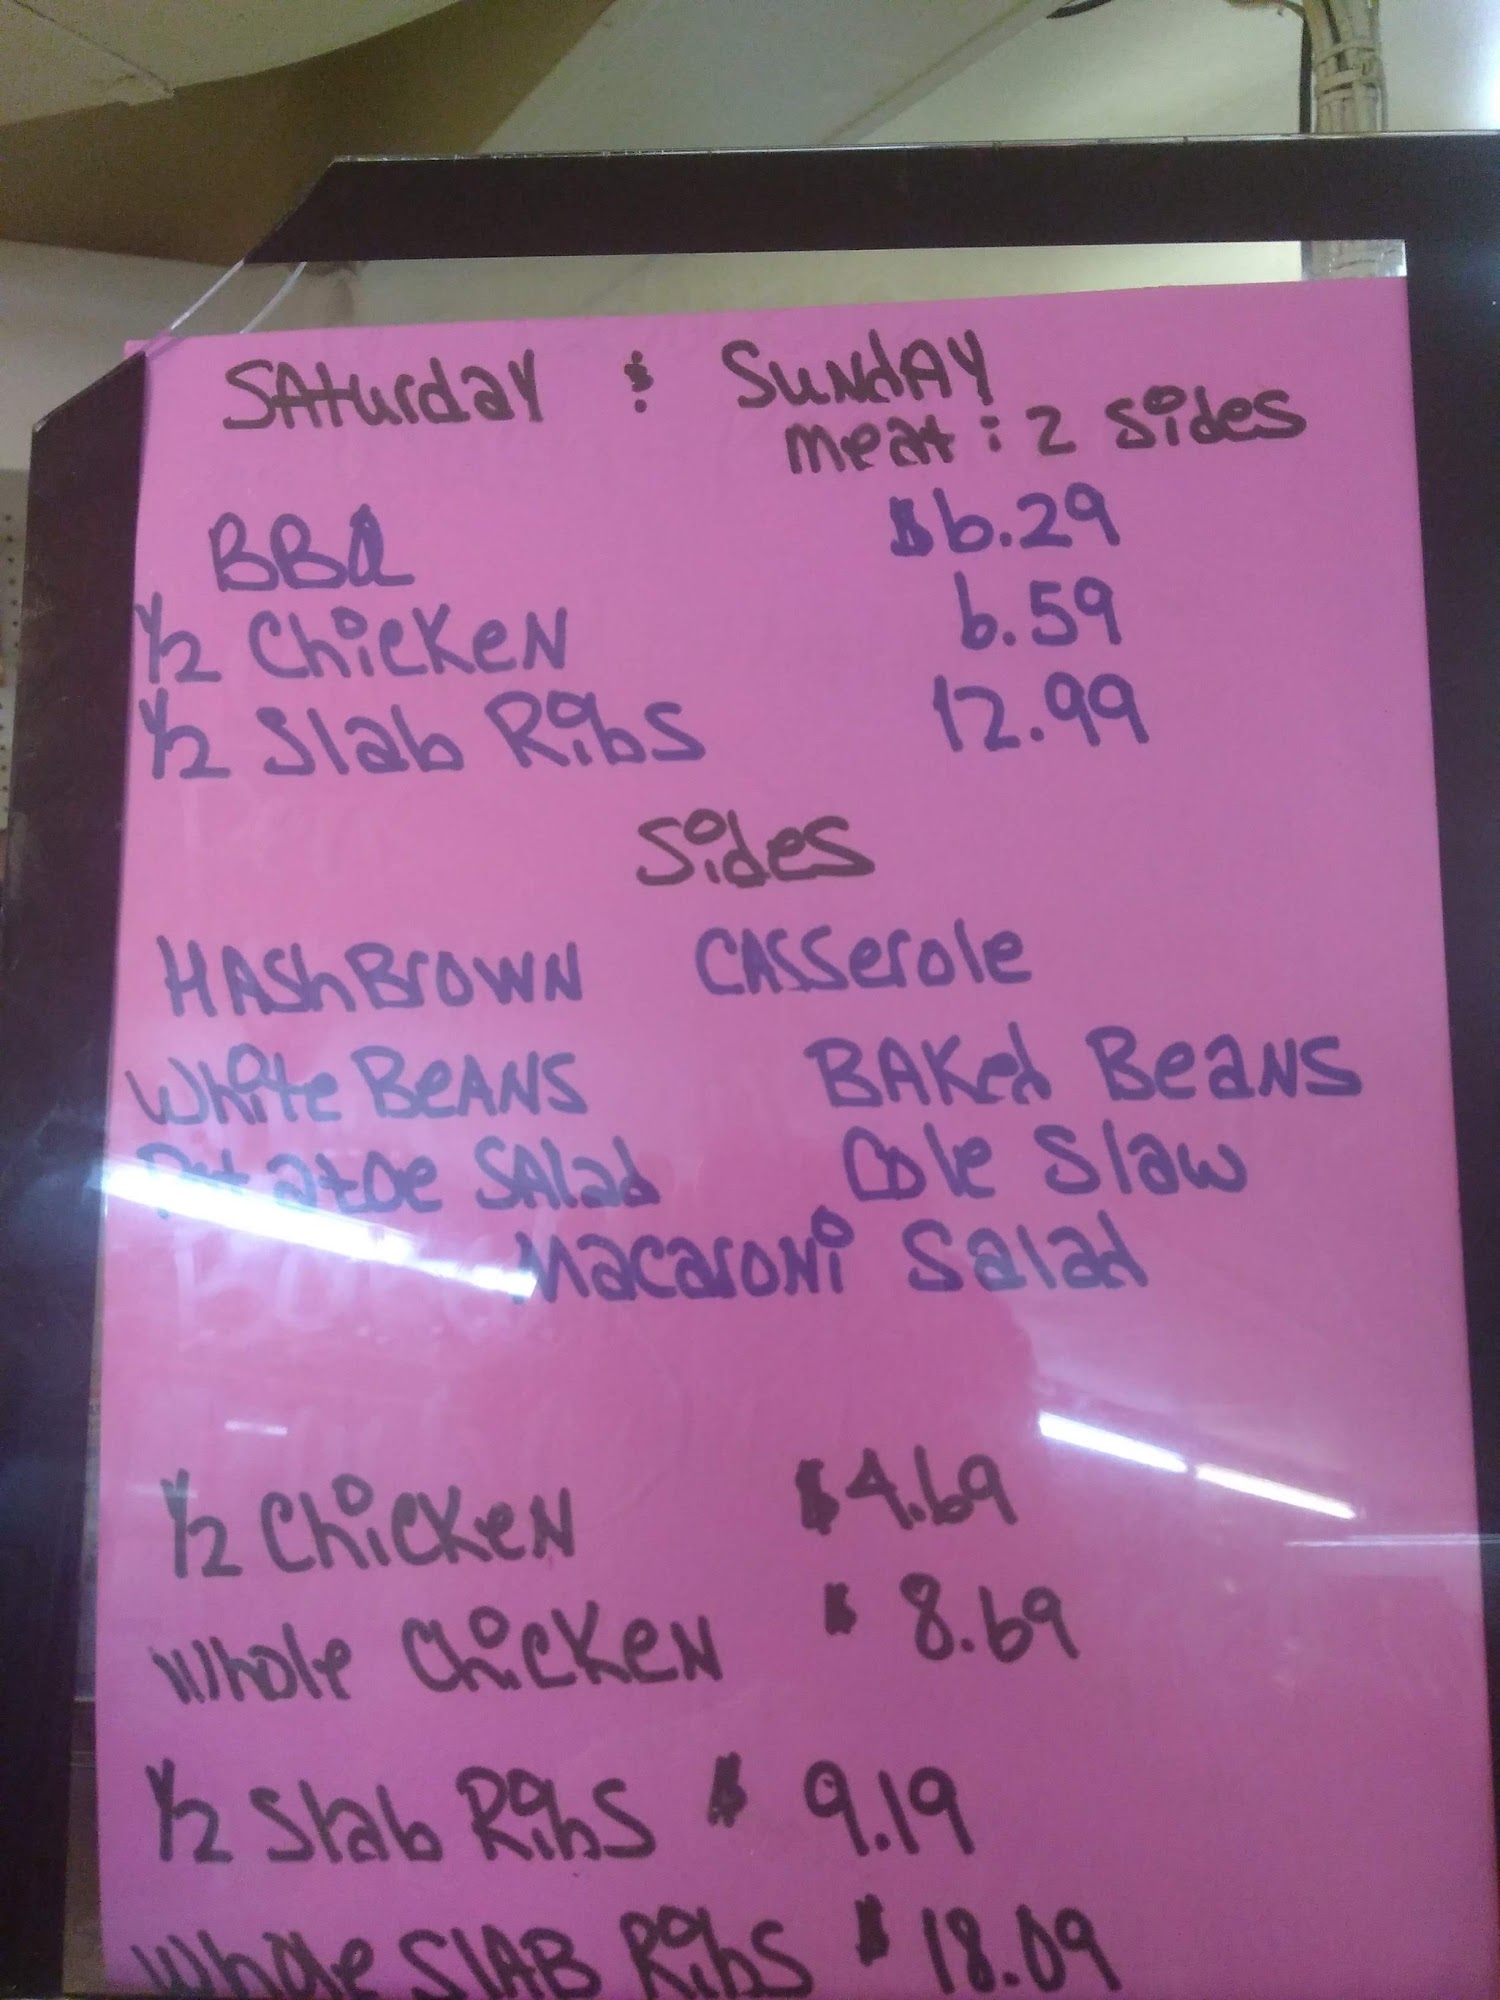 SAturday & SundAy
meat : 2 Sides
BBQ $6.29
1/2 ChicKeN 6.59
1/2 Slab Ribs 12.99
Sides
HAShBrowN CASSerole
White BeANS BAKed BeaNS
Potatoe SAlad Cole Slaw
MacaroNi Salad
1/2 ChicKeN $4.69
Whole ChicKeN $ 8.69
1/2 Slab Ribs $ 9.19
Whole SlAB Ribs $ 18.09